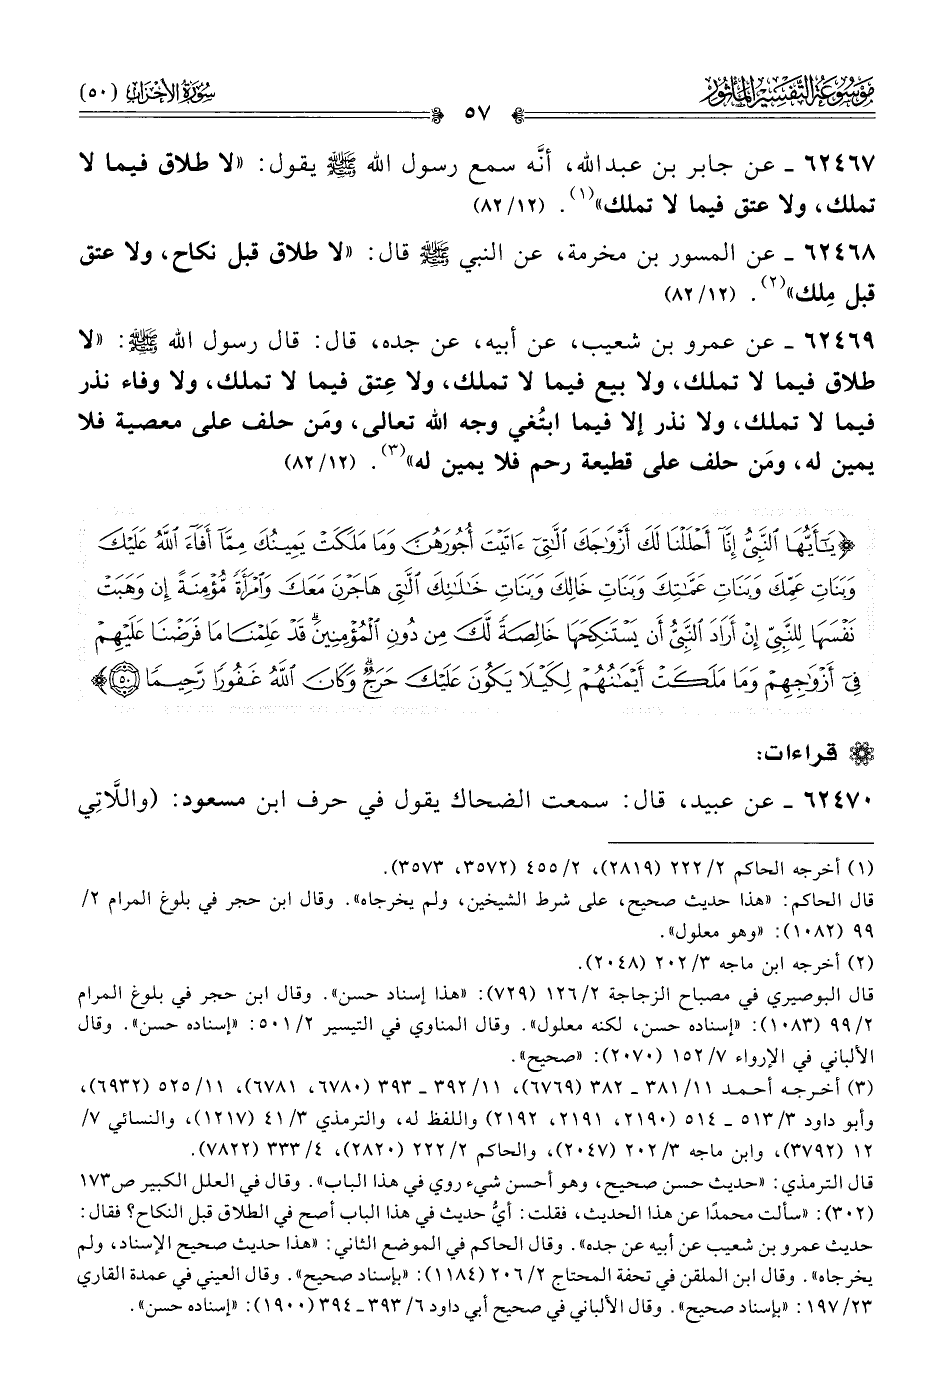 مَوْسُوعَةُ التَّفْسِيرِ المَأْثُورِ
٥٧
سُورَةُ الأَحْزَابِ (٥٠)
٦٢٤٦٧ ـ عن جابر بن عبدالله، أنَّه سمع رسول الله ﷺ يقول: «لا طلاق فيما لا
تملك، ولا عتق فيما لا تملك»(١). (١٢/ ٨٢)
٦٢٤٦٨ ـ عن المسور بن مخرمة، عن النبي ﷺ قال: «لا طلاق قبل نكاح، ولا عتق
قبل مِلك»(٢). (١٢/ ٨٢)
٦٢٤٦٩ ـ عن عمرو بن شعيب، عن أبيه، عن جده، قال: قال رسول الله ﷺ: «لا
طلاق فيما لا تملك، ولا بيع فيما لا تملك، ولا عِتق فيما لا تملك، ولا وفاء نذر
فيما لا تملك، ولا نذر إلا فيما ابتُغي وجه الله تعالى، ومَن حلف على معصية فلا
يمين له، ومَن حلف على قطيعة رحم فلا يمين له»(٣). (١٢/ ٨٢)
﴿يَٰٓأَيُّهَا ٱلنَّبِيُّ إِنَّآ أَحْلَلْنَا لَكَ أَزْوَٰجَكَ ٱلَّٰتِىٓ ءَاتَيْتَ أُجُورَهُنَّ وَمَا مَلَكَتْ يَمِينُكَ مِمَّآ أَفَآءَ ٱللَّهُ عَلَيْكَ
وَبَنَاتِ عَمِّكَ وَبَنَاتِ عَمَّٰتِكَ وَبَنَاتِ خَالِكَ وَبَنَاتِ خَٰلَٰتِكَ ٱلَّٰتِى هَاجَرْنَ مَعَكَ وَٱمْرَأَةً مُّؤْمِنَةً إِن وَهَبَتْ
نَفْسَهَا لِلنَّبِيِّ إِنْ أَرَادَ ٱلنَّبِيُّ أَن يَسْتَنكِحَهَا خَالِصَةً لَّكَ مِن دُونِ ٱلْمُؤْمِنِينَۗ قَدْ عَلِمْنَا مَا فَرَضْنَا عَلَيْهِمْ
فِىٓ أَزْوَٰجِهِمْ وَمَا مَلَكَتْ أَيْمَٰنُهُمْ لِكَيْلَا يَكُونَ عَلَيْكَ حَرَجٌۗ وَكَانَ ٱللَّهُ غَفُورًا رَّحِيمًا ٥٠﴾
قراءات:
٦٢٤٧٠ ـ عن عبيد، قال: سمعت الضحاك يقول في حرف ابن مسعود: (واللَّاتِي
(١) أخرجه الحاكم ٢/ ٢٢٢ (٢٨١٩)، ٢/ ٤٥٥ (٣٥٧٢، ٣٥٧٣).
قال الحاكم: «هذا حديث صحيح، على شرط الشيخين، ولم يخرجاه». وقال ابن حجر في بلوغ المرام ٢/
٩٩ (١٠٨٢): «وهو معلول».
(٢) أخرجه ابن ماجه ٣/ ٢٠٢ (٢٠٤٨).
قال البوصيري في مصباح الزجاجة ٢/ ١٢٦ (٧٢٩): «هذا إسناد حسن». وقال ابن حجر في بلوغ المرام
٢/ ٩٩ (١٠٨٣): «إسناده حسن، لكنه معلول». وقال المناوي في التيسير ٢/ ٥٠١: «إسناده حسن». وقال
الألباني في الإرواء ٧/ ١٥٢ (٢٠٧٠): «صحيح».
(٣) أخرجه أحمد ١١/ ٣٨١ ـ ٣٨٢ (٦٧٦٩)، ١١/ ٣٩٢ ـ ٣٩٣ (٦٧٨٠، ٦٧٨١)، ١١/ ٥٢٥ (٦٩٣٢)،
وأبو داود ٣/ ٥١٣ ـ ٥١٤ (٢١٩٠، ٢١٩١، ٢١٩٢) واللفظ له، والترمذي ٣/ ٤١ (١٢١٧)، والنسائي ٧/
١٢ (٣٧٩٢)، وابن ماجه ٣/ ٢٠٢ (٢٠٤٧)، والحاكم ٢/ ٢٢٢ (٢٨٢٠)، ٤/ ٣٣٣ (٧٨٢٢).
قال الترمذي: «حديث حسن صحيح، وهو أحسن شيء روي في هذا الباب». وقال في العلل الكبير ص١٧٣
(٣٠٢): «سألت محمدًا عن هذا الحديث، فقلت: أيُّ حديث في هذا الباب أصح في الطلاق قبل النكاح؟ فقال:
حديث عمرو بن شعيب عن أبيه عن جده». وقال الحاكم في الموضع الثاني: «هذا حديث صحيح الإسناد، ولم
يخرجاه». وقال ابن الملقن في تحفة المحتاج ٢/ ٢٠٦ (١١٨٤): «بإسناد صحيح». وقال العيني في عمدة القاري
٢٣/ ١٩٧: «بإسناد صحيح». وقال الألباني في صحيح أبي داود ٦/ ٣٩٣ ـ ٣٩٤ (١٩٠٠): «إسناده حسن».